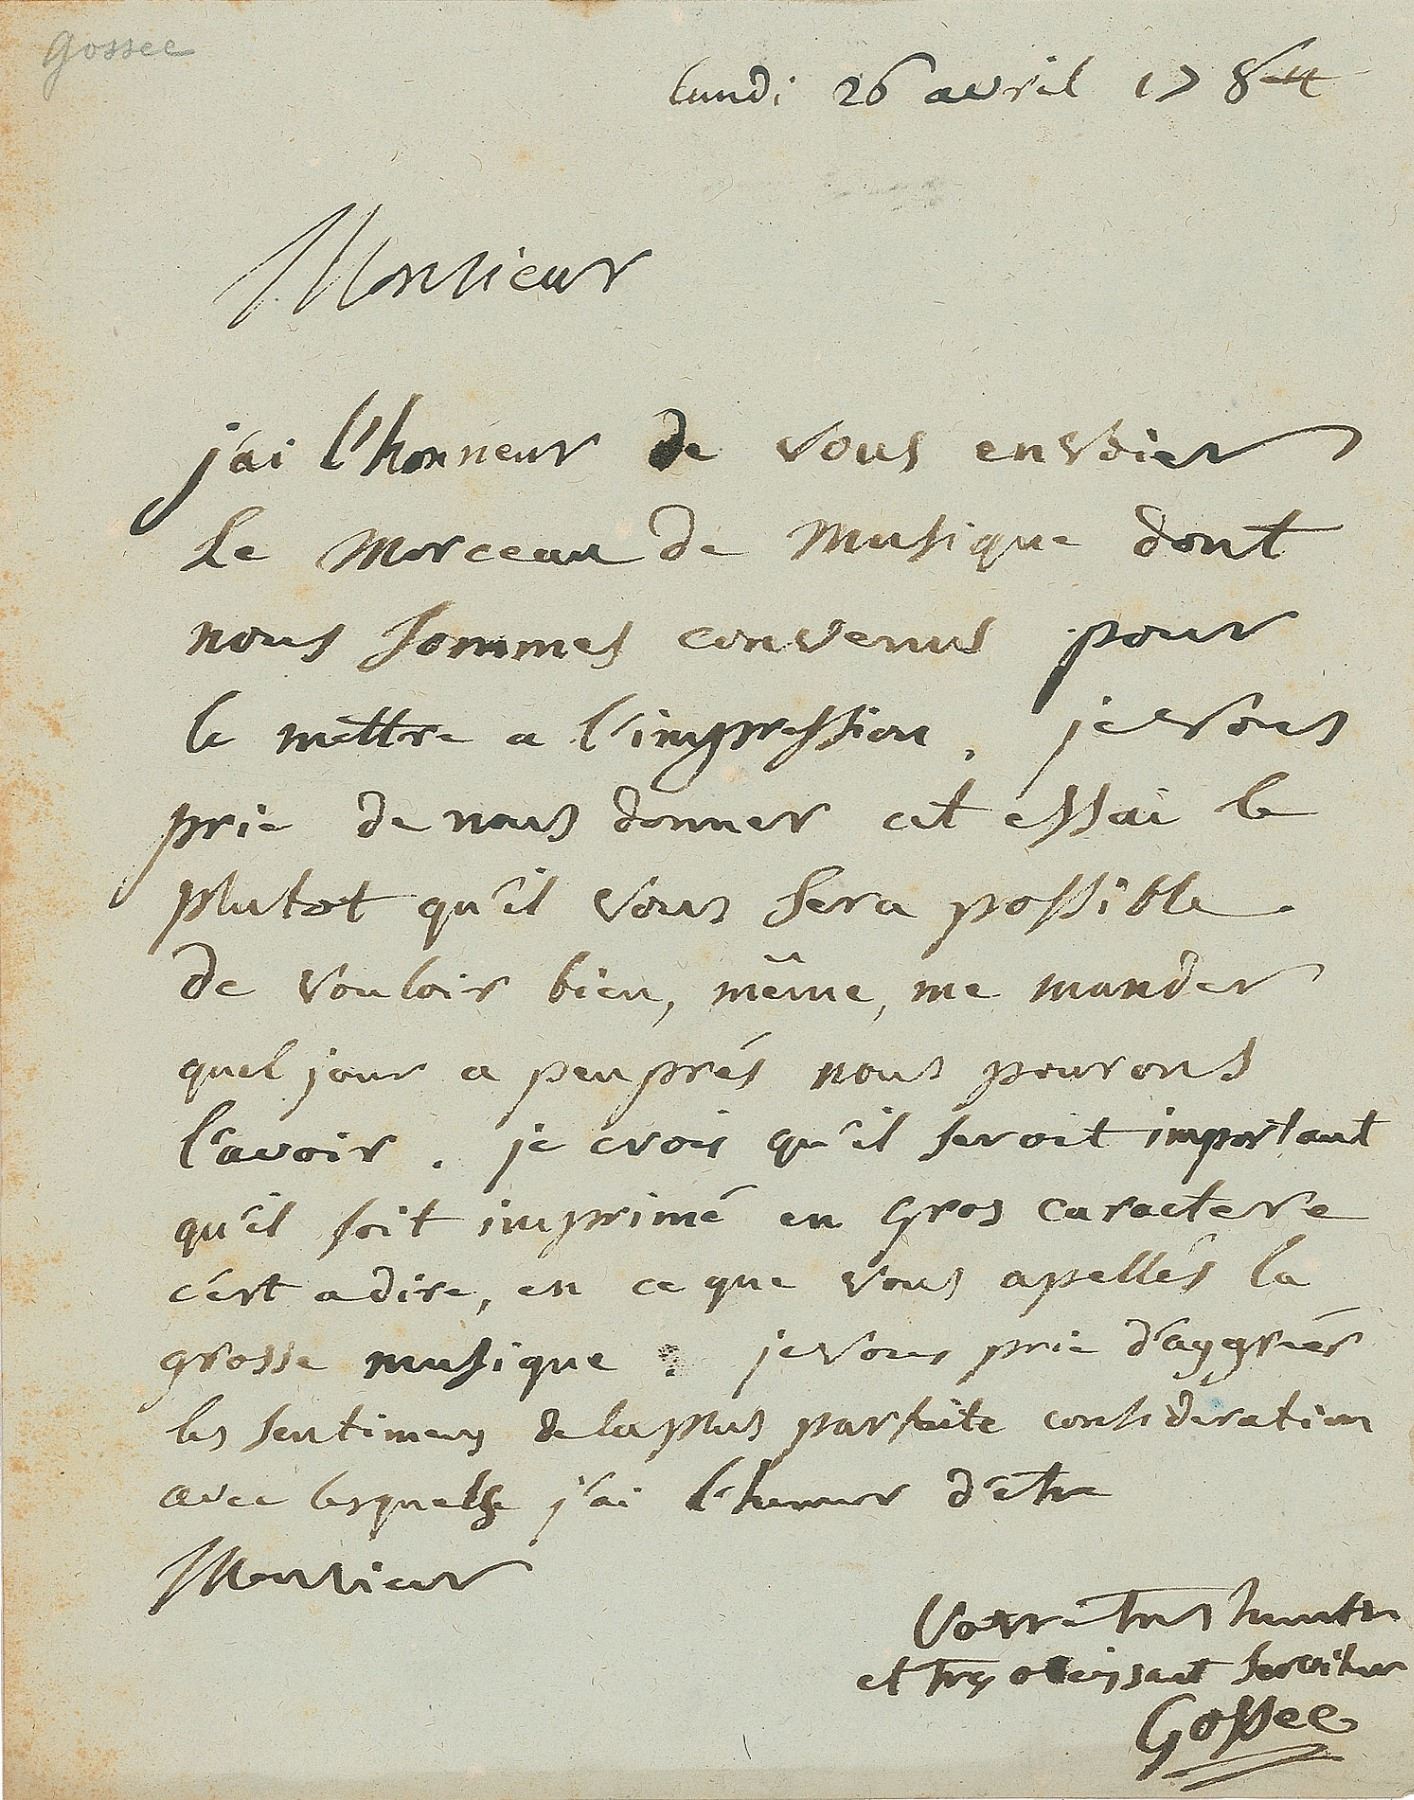 Gossec
lundi 26 avril 1784
Monsieur
j'ai l'honneur de vous envoier
Le morceau de Musique dont
nous sommes convenus pour
le mettre a l'impression. je vous
prie de nous donner cet essai le
plutot qu'il vous sera possible
de vouloir bien, même, me mander
quel jour a peuprés nous pourons
l'avoir. je crois qu'il seroit important
qu'il soit imprimé en gros caractere
c'est adire, en ce que vous apellés la
grosse musique : je vous prie d'aggréér
les sentimens de la plus parfaite consideration
avec lesquels j'ai l'honneur d'etre
Monsieur
Votre tres humble
et tres obeissant serviteur
Gossec